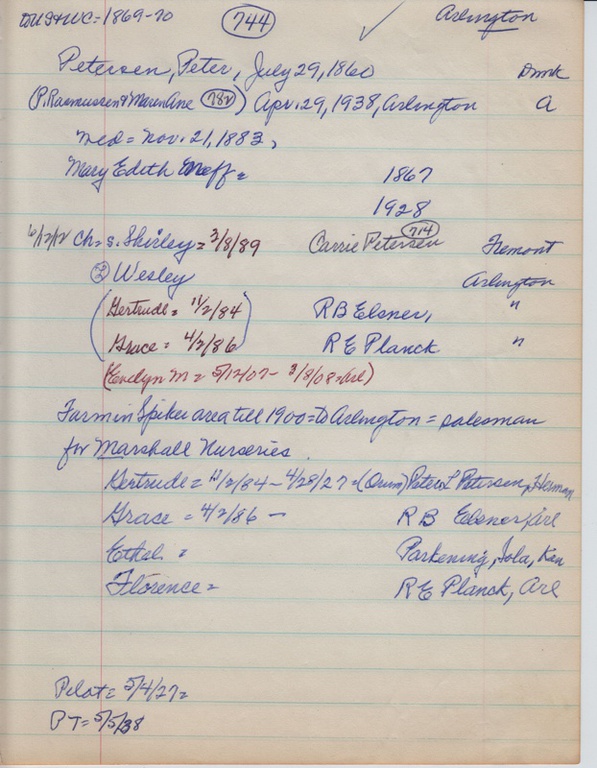 to US+WC=1869-70 744 Arlington
Petersen, Peter, July 29, 1860 Dmk
(P. Rasmussen & Maren Ane 782) Apr. 29, 1938, Arlington A
med = Nov. 21, 1883,
Mary Edith Neff = 1867
1928
6/12/12 Ch = s. Shirley = 3/8/89 Carrie Petersen 714 Fremont
2 Wesley Arlington
(Gertrude = 11/2/84) RB Elsner, "
(Grace = 4/2/86) RE Planck "
(Evelyn M = 5/12/07 - 3/8/08 = Arl)
Farm in Spiker area till 1900 = to Arlington = salesman
for Marshall Nurseries.
Gertrude = 11/2/84 - 4/28/27 = (Orum) Peter L Petersen, Herman
Grace = 4/2/86 - RB Elsner, Arl
Ethel = Parkening, Iola, Kan
Florence = RE Planck, Arl
Pilot = 5/4/27 =
PT = 5/5/38